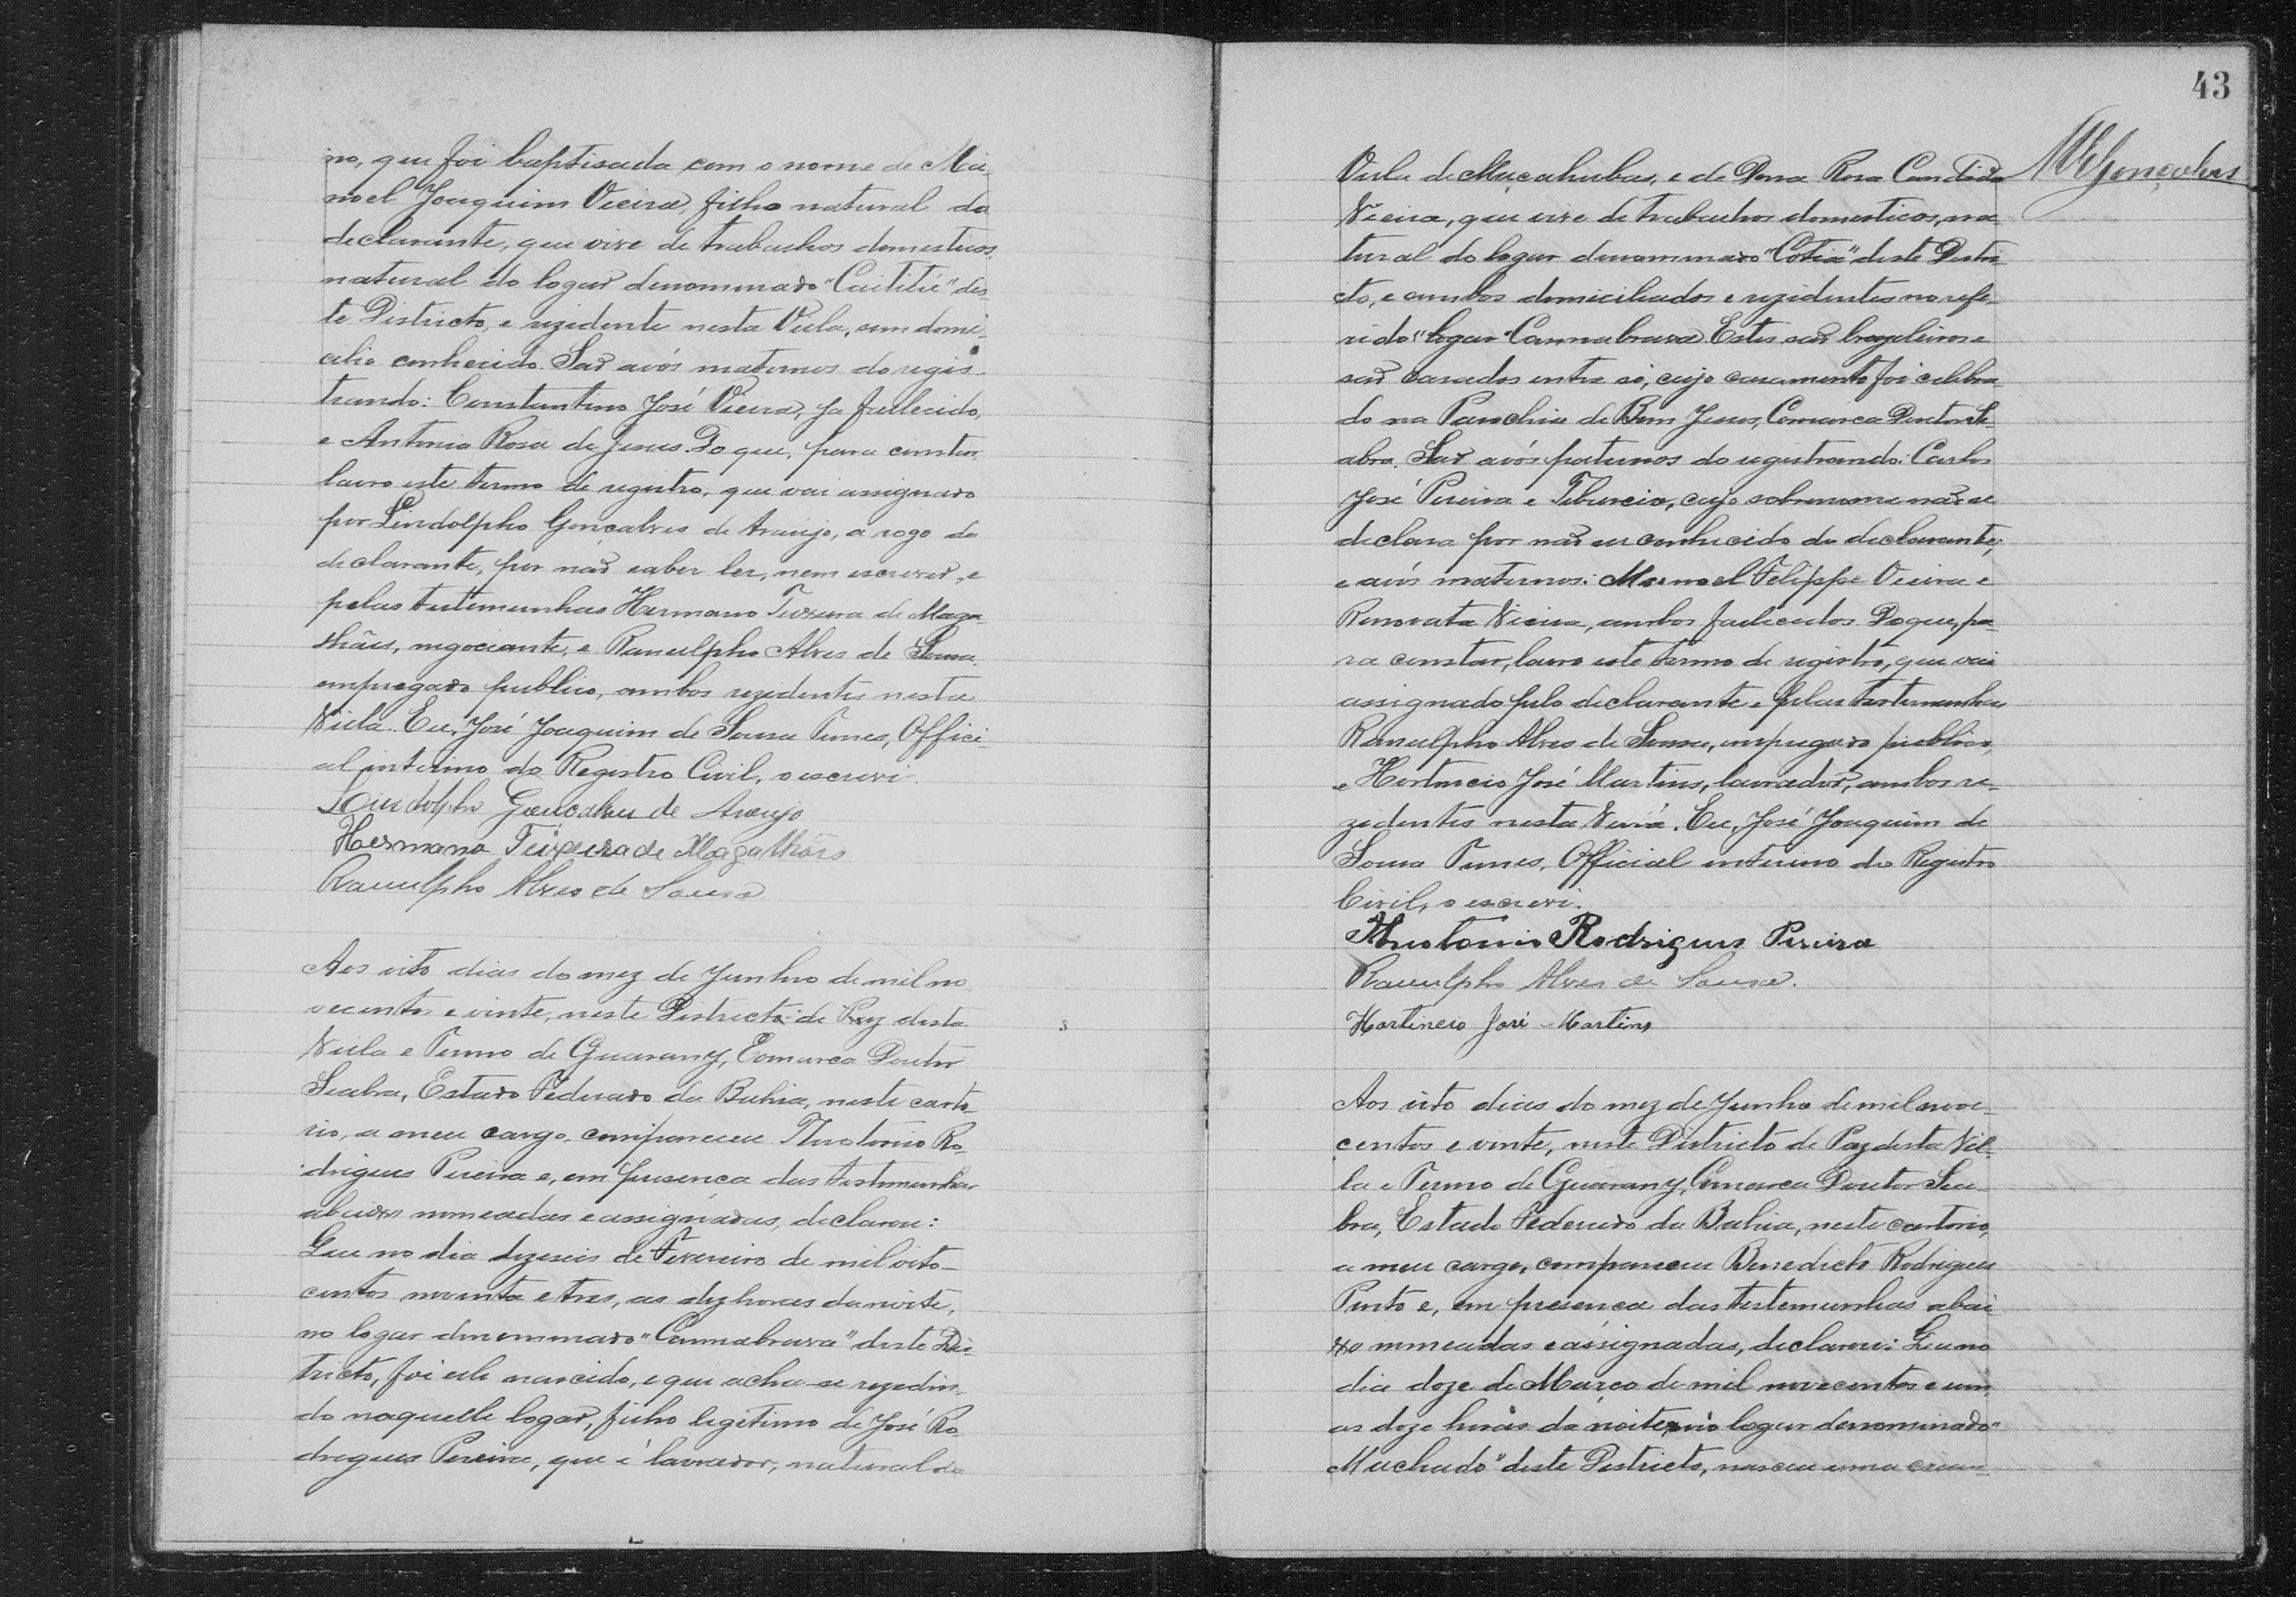 no, que foi baptisada com o nome de Ma-
noel Joaquim Vieira, filho natural da
declarante, que vive de trabalhos domesticos,
natural do logar denominado "Caititú" des-
te Districto, e rezidente nesta Villa, sem domi-
cilio conhecido. Saõ avós maternos do regis-
trando: Constantino José Vieira, ja fallecido,
e Antonia Rosa de Jesus. Do que, para constar,
lavro este termo de registro, que vai assignado
por Lindolpho Gonçalves de Araujo, a rogo da
declarante, por naõ saber ler, nem escrever, e
pelas testemunhas Hermano Teixeira de Maga-
lhães, negociante, e Ranulpho Alves de Sousa,
empregado publico, ambos rezidentes nesta
Villa. Eu, José Joaquim de Sousa Tunes, Offici-
al interino do Registro Civil, o escrevi.
Lindolpho Gonçalves de Araujo
Hermano Teixeira de Magalhães
Ranulpho Alves de Sousa
Aos oito dias do mez de Junho de mil no
vecentos e vinte, neste Districto de Paz desta
Villa e Termo de Guarany, Comarca Doutor
Seabra, Estado Federado da Bahia, neste carto-
rio, a meu cargo, compareceu Theotonio Ro-
drigues Pereira e, em presença das testemunhas
abaixo nomeadas e assignadas, declarou:
Que no dia dezeseis de Fevereiro de mil oito-
centos noventa e tres, as dez horas da noite,
no logar denominado "Cannabrava" deste Dis-
tricto, foi elle nascido, e que acha-se rezedin-
do naquelle logar, filho legitimo de José Ro-
drigues Pereira, que é lavrador, natural da
43
Villa de Macahubas, e de Dona Rosa Candida
Vieira, que vive de trabalhos domesticos, na-
tural do logar denominado "Cotia" deste Distri-
cto, e ambos domiciliados e rezidentes no refe-
rido "logar "Cannabrava. Estes saõ brazileiros e
saõ casados entre si, cujo casamento foi celebra-
do na Parochia de Bom Jesus, Comarca Doutor Se-
abra. Saõ avós paternos do registrando: Carlos
José Pereira e Tiburcia, cujo sobrenome naõ se
declara por naõ ser conhecido do declarante;
e avós maternos: Manoel Felippe Vieira e
Renovata Vieira, ambos fallecidos. Do que, pa-
ra constar, lavro este termo de registro, que vai
assignado pelo declarante e pelas testemunhas
Ranulpho Alves de Sousa, empregado publico,
e Hortencio José Martins, lavrador, ambos re-
zidentes nesta Villa. Eu, José Joaquim de
Sousa Tunes, Official interino do Registro
Civil, o escrevi.
Theotonio Rodrigues Pereira
Ranulpho Alves de Sousa.
Hortencio José Martins
Aos oito dias do mez de Junho de mil nove-
centos e vinte, neste Districto de Paz desta Vil-
la e Termo de Guarany, Comarca Doutor Sea-
bra, Estado Federado da Bahia, neste cartorio,
a meu cargo, compareceu Benedicto Rodrigues
Pinto e, em presença das testemunhas abai-
xo nomeadas e assignadas, declarou: Que no
dia doze de Março de mil novecentos e um,
as doze horas da noite, no logar denominado "
Machado" deste Districto, nasceu uma crian-